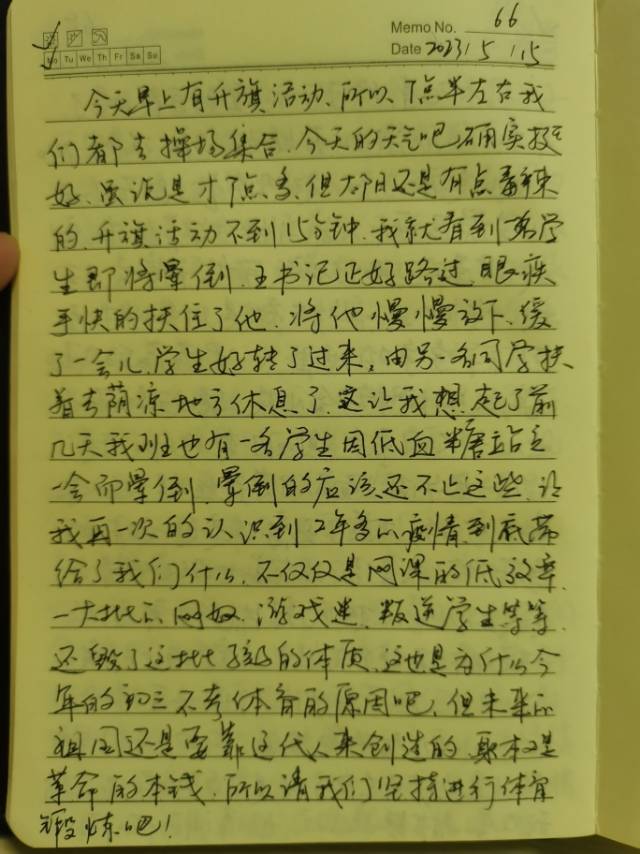 Memo No. 66
Mo Tu We Th Fr Sa Su
Date 2023 / 5 / 15
今天早上有升旗活动、所以、7点半左右我
们都去操场集合、今天的天气吧确实挺
好、虽说是才7点多、但太阳还是有点毒辣
的、升旗活动不到15分钟、我就看到有学
生即将晕倒、王书记正好路过、眼疾
手快的扶住了他、将他慢慢放下、缓
了一会儿、学生好转了过来，由另一名同学扶
着去荫凉地方休息了、这让我想起了前
几天我班也有一名学生因低血糖站立
一会而晕倒、晕倒的应该还不止这些、让
我再一次的认识到2年多的疫情到底带
给了我们什么、不仅仅是网课的低效率、
一大批的网奴、游戏迷、叛逆学生等等、
还毁了这批孩子的体质、这也是为什么今
年的初三不考体育的原因吧、但未来的
祖国还是要靠这代人来创造的、身体是
革命的本钱、所以请我们坚持进行体育
锻炼吧！